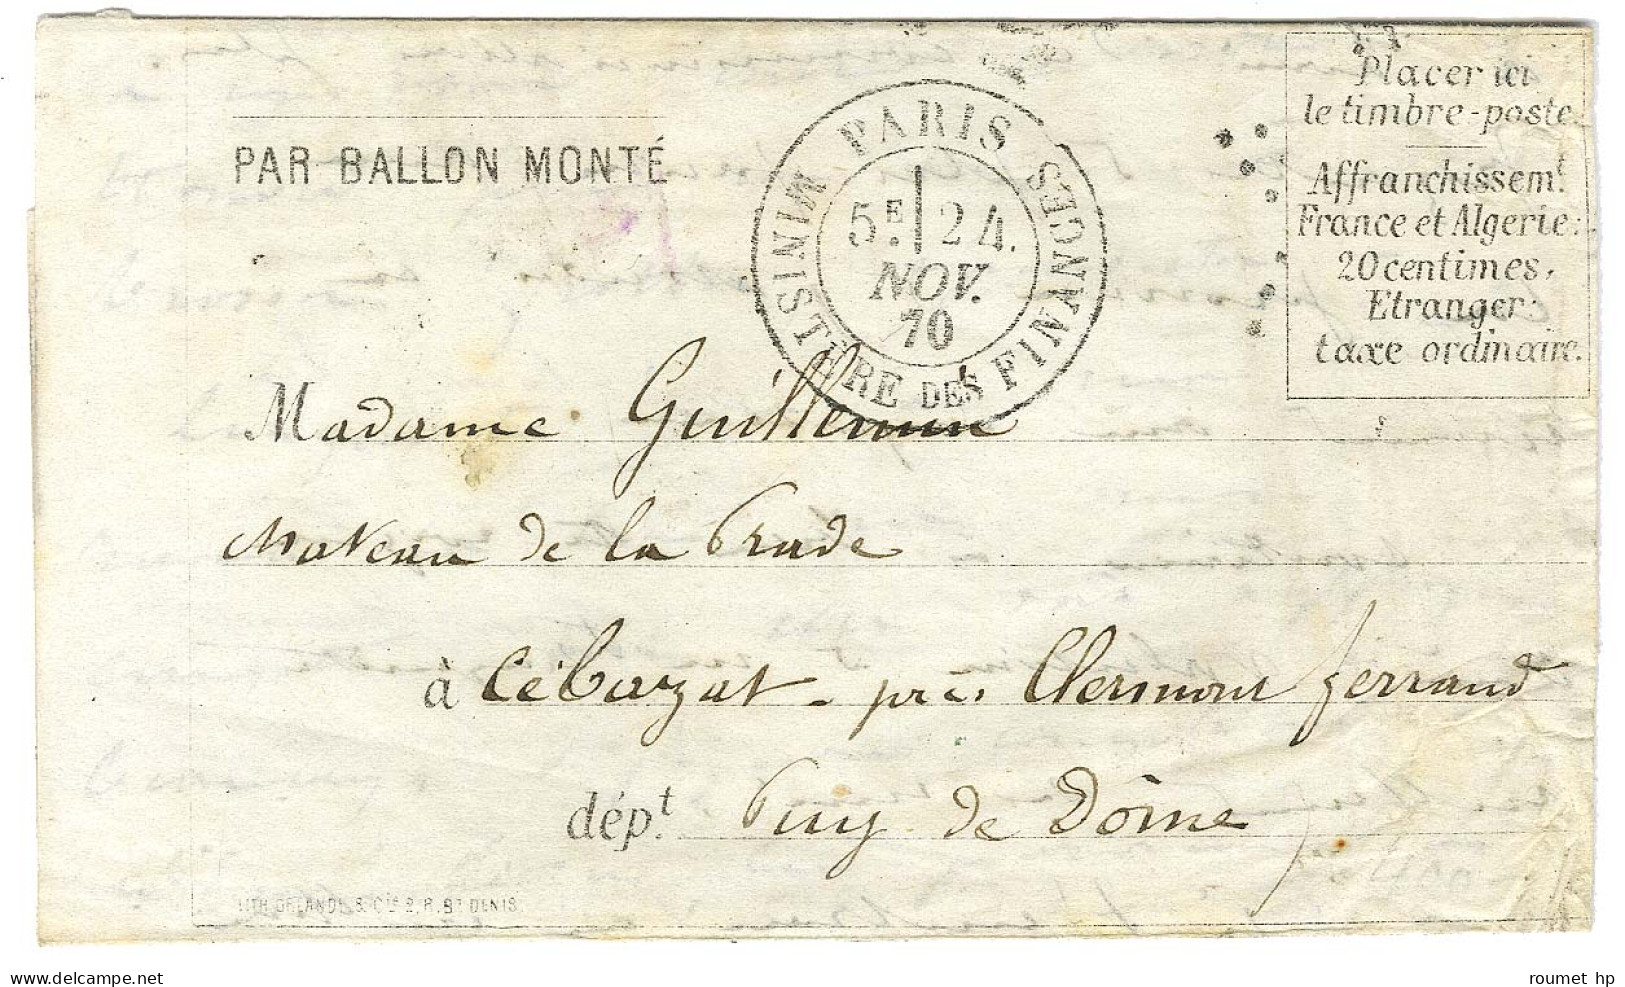 PAR BALLON MONTÉ
PARIS
MINISTÈRE DES FINANCES
5E. 24.
NOV.
70
Placer ici
le timbre-poste.
Affranchissemt.
France et Algerie:
20 centimes.
Etranger:
taxe ordinaire.
Madame Guillemin
de la Prade
à Cébazat - près Clermont ferrand
dépt. Puy de Dôme
LITH ORLANDI & Cie 2, R. St DENIS.
roumet hp